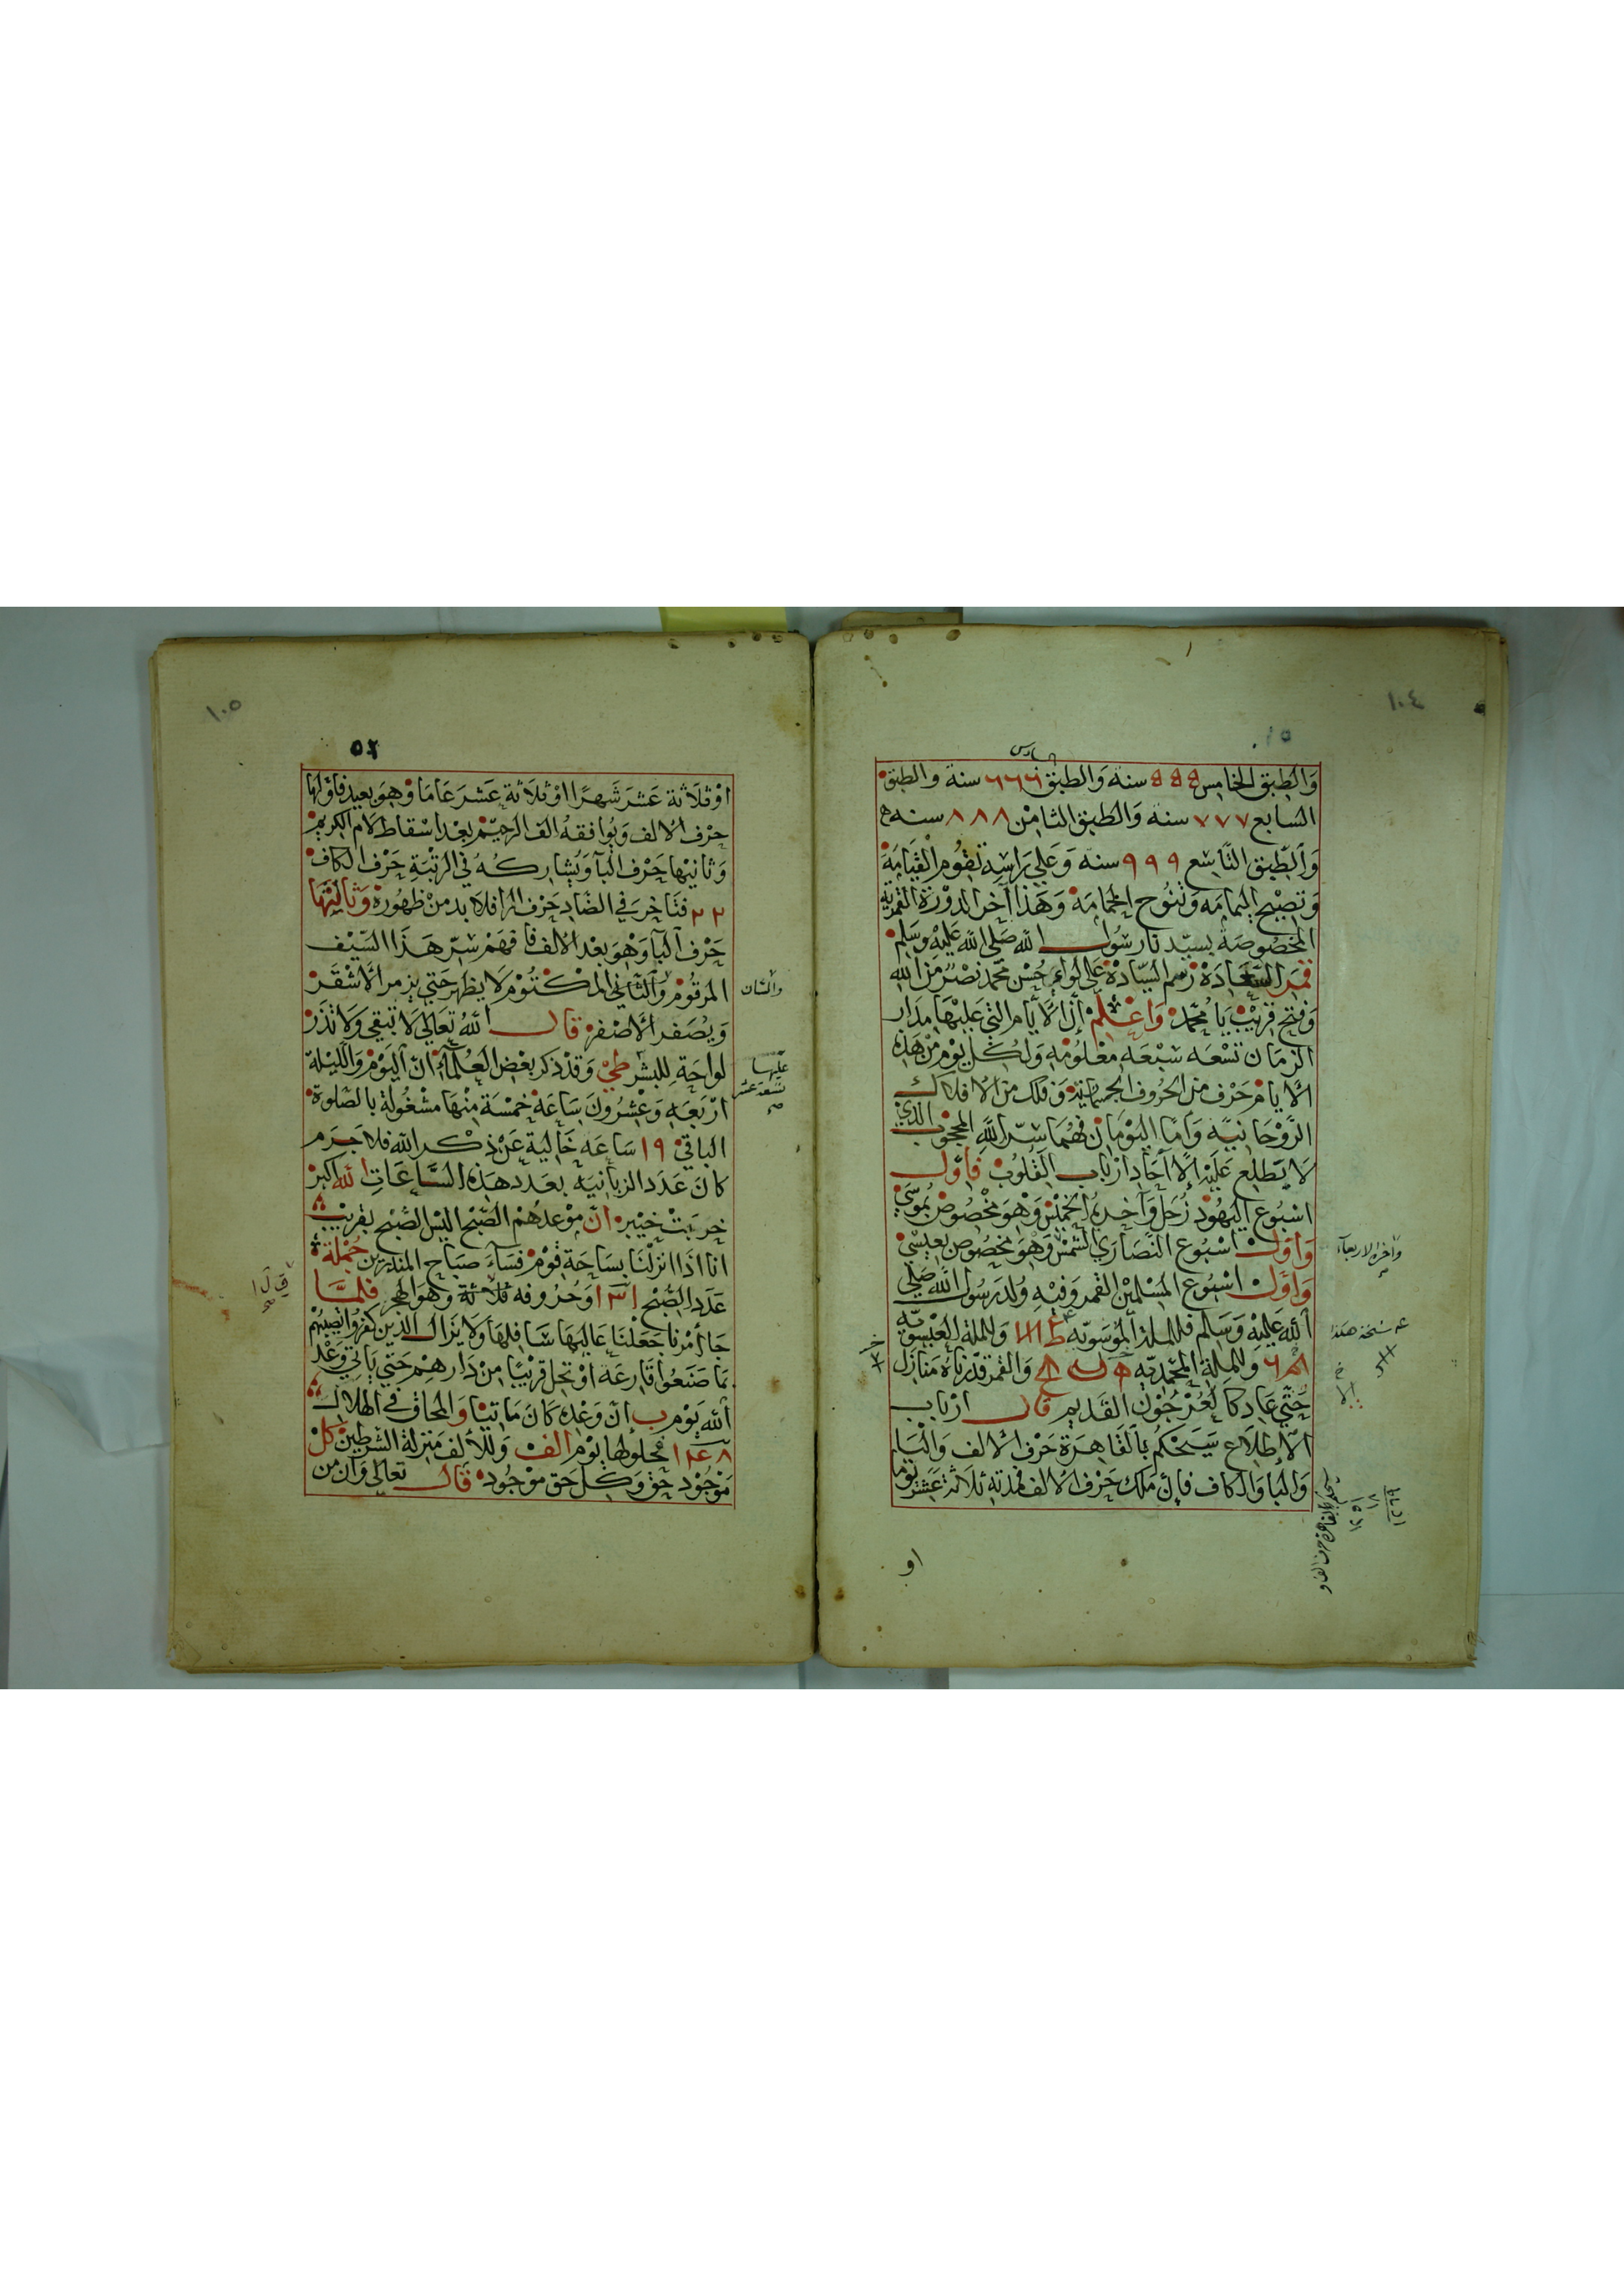 ١٠٤
سادس
وَالطبق الخامس ٥٥٥ سنة وَالطبق ٦٦٦ سنة والطبق
السابع ٧٧٧ سنة وَالطبق الثامن ٨٨٨ سنه
وَالطبق التاسع ٩٩٩ سنة وَعلي راسه تقوم القيامة
وتصبح اليمامه وتنوح الحمامة وَهذا آخر الدورة القمرية
المخصوصة بسيدنا رسول الله صلي الله عليه وسلم
قمر السعادة رسم السيادة علي لواء حسن محمد نصر من الله
وفتح قريب يا محمد وَاعلم ان الايام التي عليها مدار
الزمان تسعه سبعه معلومه ولكل يوم من هذه
الايام حرف من الحروف الجسمانية وفلك من الافلاك
الروحانيه وَاما اليومان فهما سر الله المحجوب الذي
لا يطلع عليه الا آحاد ارباب القلوب فاول
اسبوع اليهود زحل وَآخره الخميس وَهو مخصوص بموسي
وَاول اسبوع النصاري الشمس وَهو مخصوص بعيسي
وَاخره الاربعاء
وَاول اسبوع المسلمين القمر وفيه ولد رسول الله صلي
الله عليه وَسلم فللملة الموسويه وللملة العيسويه
عه نسخة هكذا
وللملة المحمديه وَالقمر قدرناه منازل
حتي عاد كالعرجون القديم قال ارباب
الاطلاع سيحكم بالقاهرة حرف الالف وَالباء
وَالبا وَالكاف فان ملك حرف الالف فمدته ثلاثة عشر يوما
او
١٠٥
٥٢
او ثلاثة عشر شهرا او ثلاثة عشر عاما وهو بعيد فاولها
حرف الالف ويوافقه الف الرحيم بعد اسقاط لام الكريم
وَثانيها حرف البا ويشاركه في الرتبة حرف الكاف
٢٢ فتاخر في الضاد حرف الرا فلا بد من ظهوره وَثالثها
حرف البا وهو بعد الالف فافهم سر هذا السيف
المرقوم وَالثاني المكتوم لا يظهر حتي يزمر الاشقر
ويصفر الاصفر قال الله تعالي لا تبقي ولا تذر
لواحة للبشر وَقد ذكر بعض العلماء ان اليوم وَالليلة
عليها
تسعة عشر
صح
اربعه وعشرون ساعة خمسة منها مشغولة بالصلوة
الباقي ١٩ ساعه خالية عن ذكر الله فلا جرم
كان عدد الزبانيه بعدد هذه الساعات الله اكبر
خربت خيبر ان موعدهم الصبح اليس الصبح بقريب
انا اذا نزلنا بساحة قوم فساء صباح المنذرين جملة
عدد الصبح ١٣١ وحروفه ثلاثة وهو الهجر فلما
جا امرنا جعلنا عاليها سافلها ولا يزال الذين كفروا تصيبهم
بما صنعوا قارعة او تحل قريبا من دارهم حتي ياتي وعد
الله يوم ب ان وعده كان ماتيا وَالمحاق في الهلال
١٢٤٨ محلولها يوم الف وللالف منزلة الشرطين كل
موجود حق وكل حق موجود قال تعالي وَان من